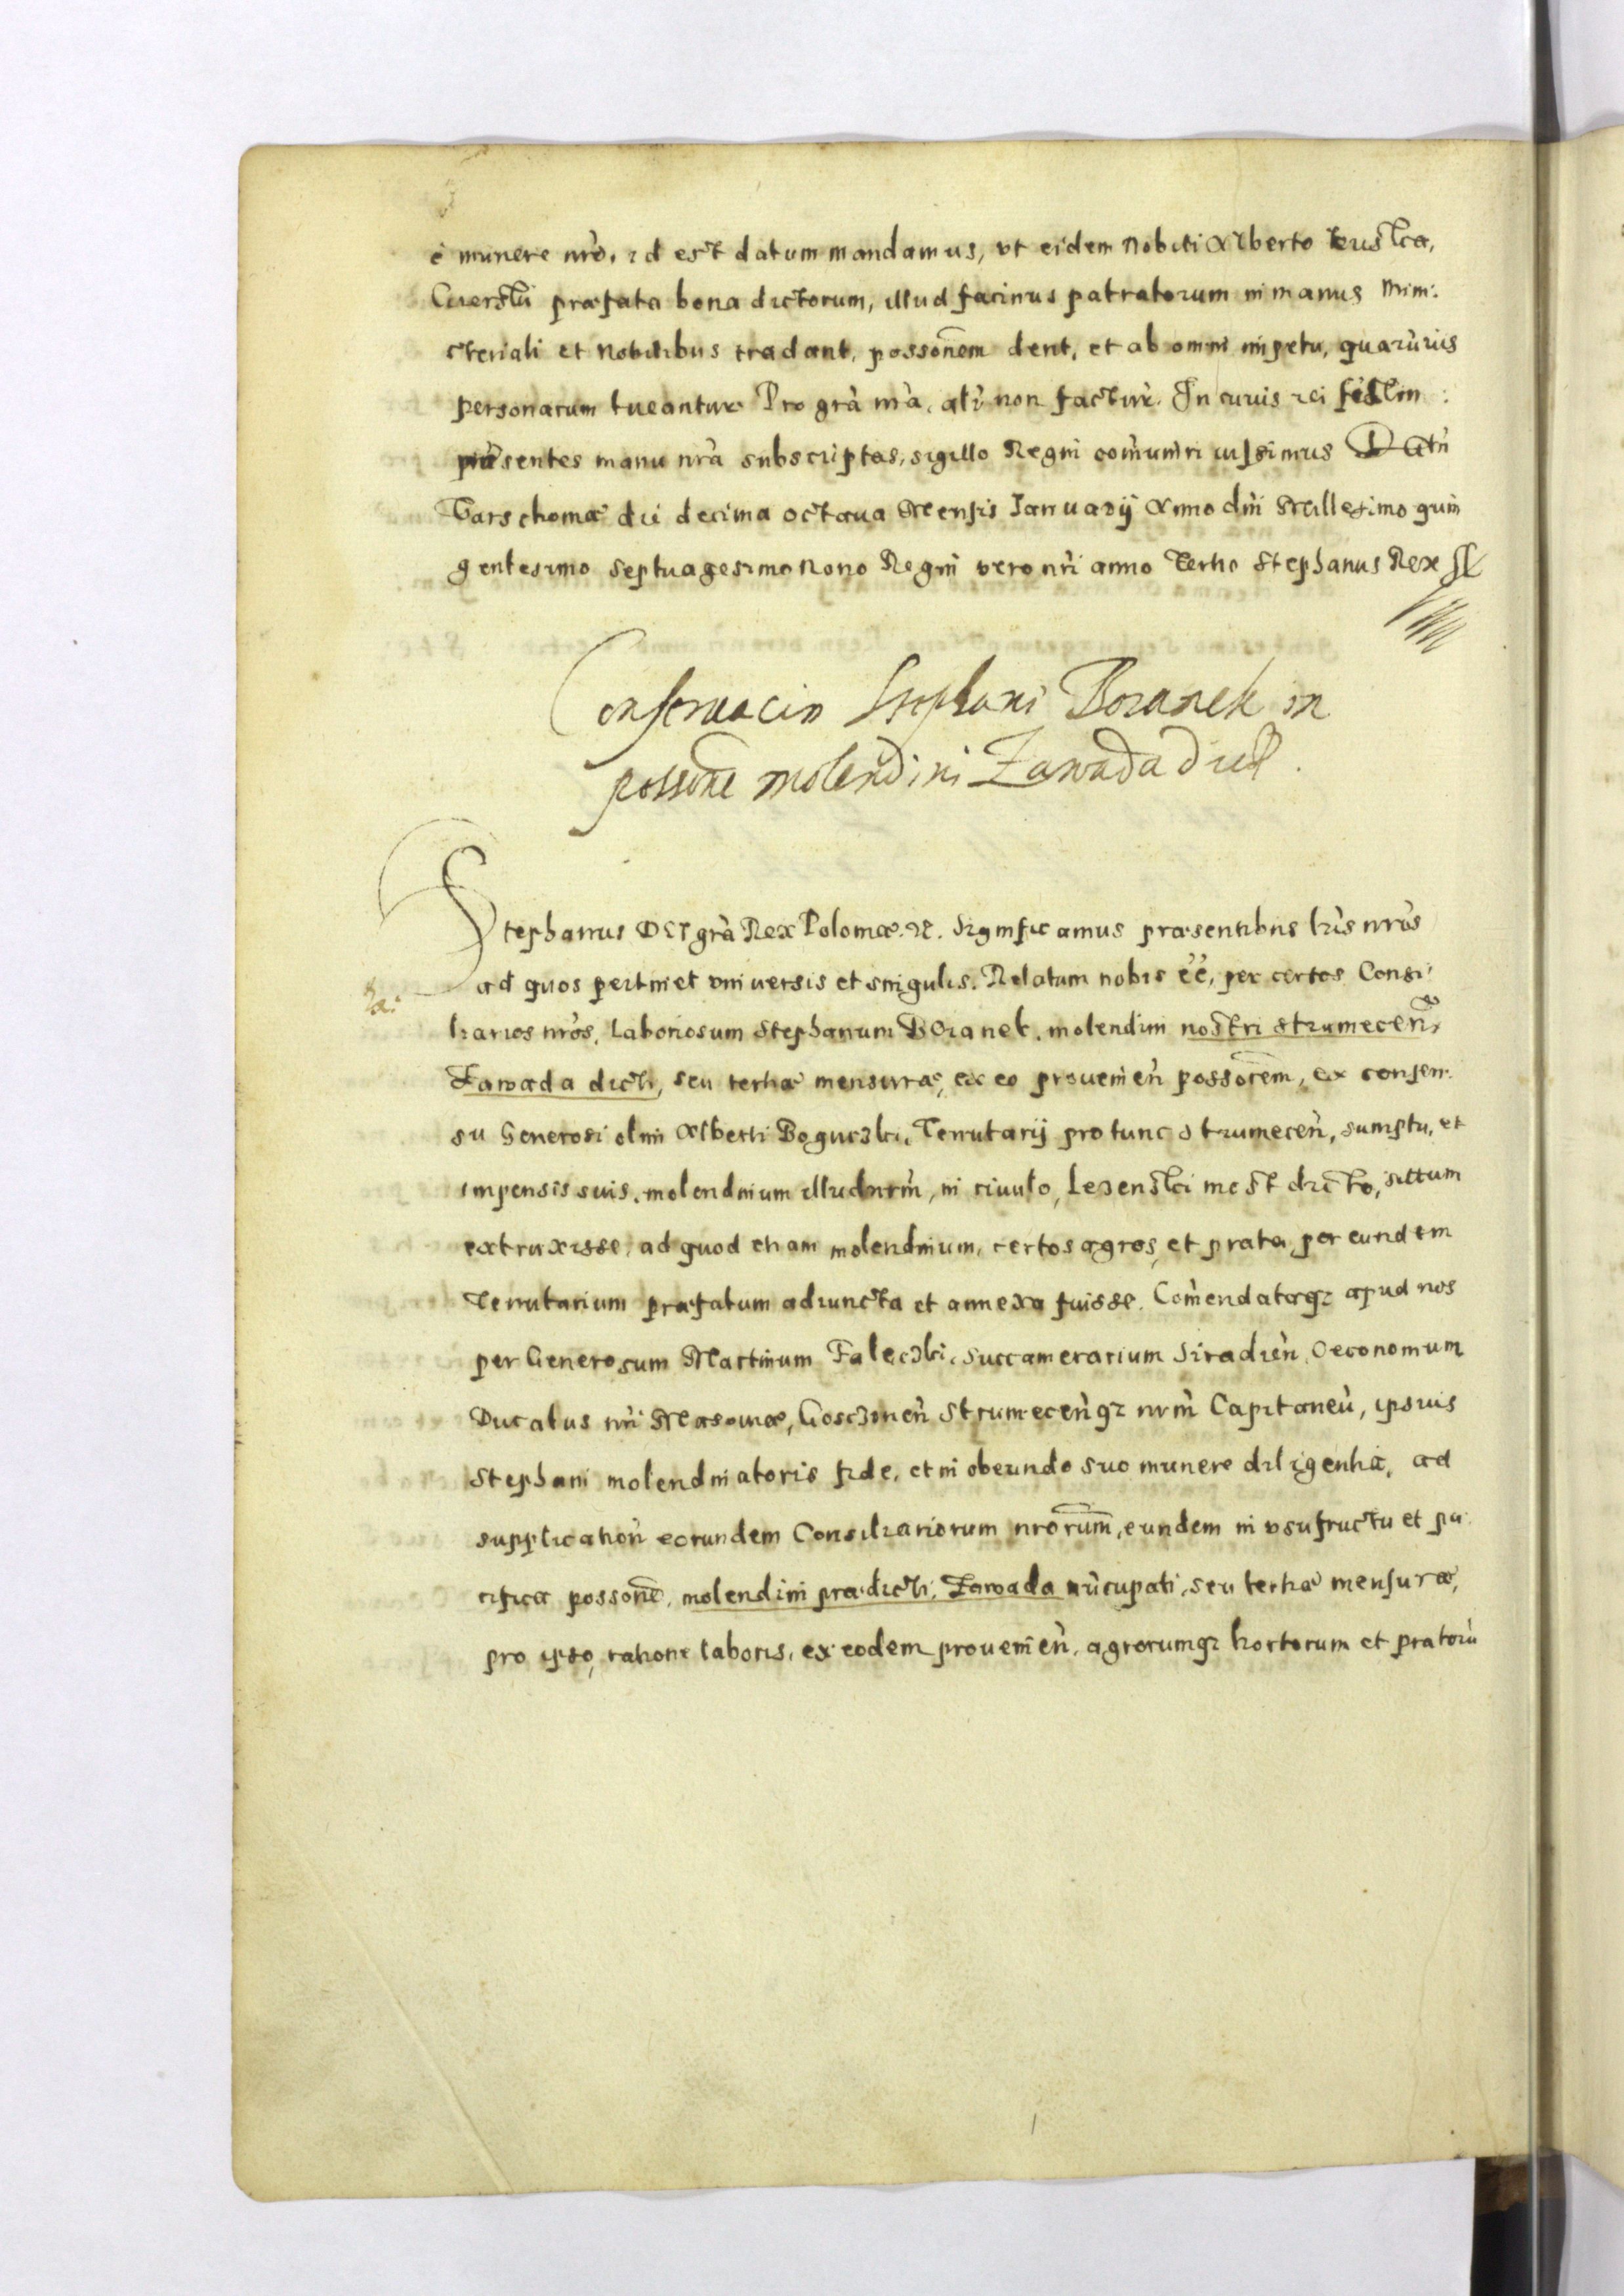 è munere nrò, id est datum mandamus, vt eidem Nobili Alberto
præfata bona dictorum, illud facinus patratorum in manus Mini:
steriali et Nobilibus tradant, possonem dent, et ab omni impetu, quarùvis
personarum tueantur Pro grà nrà, alr non facturi. In cuius rei fidem
præsentes manu nrà subscriptas, sigillo Regni comuniri iussimus Datn
Varschouiæ die decima octaua Mensis Ianuarij Anno dni Millesimo quin
gentesimo Septuagesimo Nono Regni vero nri anno Tertio Stephanus Rex
Conseruacio Stephani Boranek in
possone molendini Zawada
Stephanus DEI grà Rex Poloniæ &c. Significamus præsentibus lris nris
ad quos pertinet vniuersis et singulis. Relatum nobis eè, per certos Consi
liarios nros, Laboriosum Stephanum Boranek, molendini nostri strumecen,
Zawada dicti, seu tertiæ mensuræ, ex eo prouenien possorem, ex consen
su Generosi olim Alberti Bogucski, Tenutarij pro tunc strumecen, sumptu, et
impensis suis, molendinum illud nrm, in riuulo, Lezenski most dicto, situm
extruxisse, ad quod etiam molendinum, certos agros, et prata, per eundem
Tenutarium præfatum adiuncta et annexa fuisse. Comendataqz apud nos
per Generosum Martinum Falecski, Succamerarium Siradien, Oeconomum
Ducatus nri Masouiæ, Goscinen Strumecenqz nrm Capitaneu, ipsius
Stephani molendinatoris fide, et in obeundo suo munere diligentia, ad
supplication eorundem Consiliariorum nrorum, eundem in vsufructu et pa
cifica possone, molendini prædicti, Zawada nùcupati, seu tertiæ mensuræ,
pro ipso, ratione laboris, ex eodem prouenien, agrorumqz hortorum et pratorù